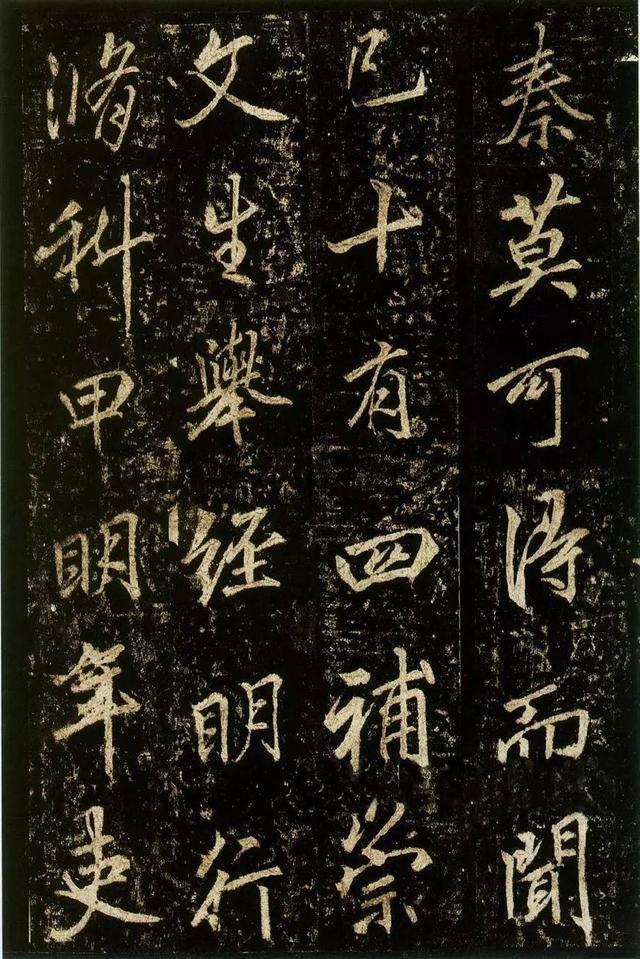 秦莫可得而聞
已十有四補崇
文生舉經明行
脩科甲明年吏